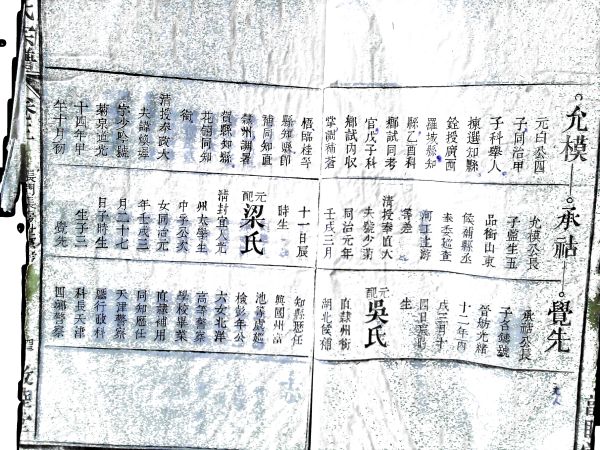 允模
承祜
覺先
元白公四
子同治甲
子科舉人
揀選知縣
銓授廣西
羅城縣知
縣乙酉科
鄉試同考
官戊子科
鄉試內收
掌調補蒼
梧臨桂等
縣知縣即
補同知直
隸州調署
賀縣知縣
花翎同知
銜
清授奉政大
夫諱
字少 號
菊泉道光
十四年甲
午十月初
允模公長
子監生五
品銜山東
候補縣丞
奉委巡查
河工上游
等差
清授奉直大
夫號少菊
同治元年
壬戌三月
十一日辰
時生
元配梁氏
清封宜人光
州太學生
中孚公次
女同治元
年壬戌二
月二十七
日子時生
生子二
覺先
承祜公長
子名 號
晉舫光緒
十二年丙
戌三月十
四日寅時
生
元配吳氏
直隸州銜
湖北候補
知縣歷任
興國州富
池等處巡
檢彭年公
六女北洋
高等警察
學校畢業
直隸補用
同知歷任
天津警察
廳行政科
科長天津
四鄉警察
氏宗譜